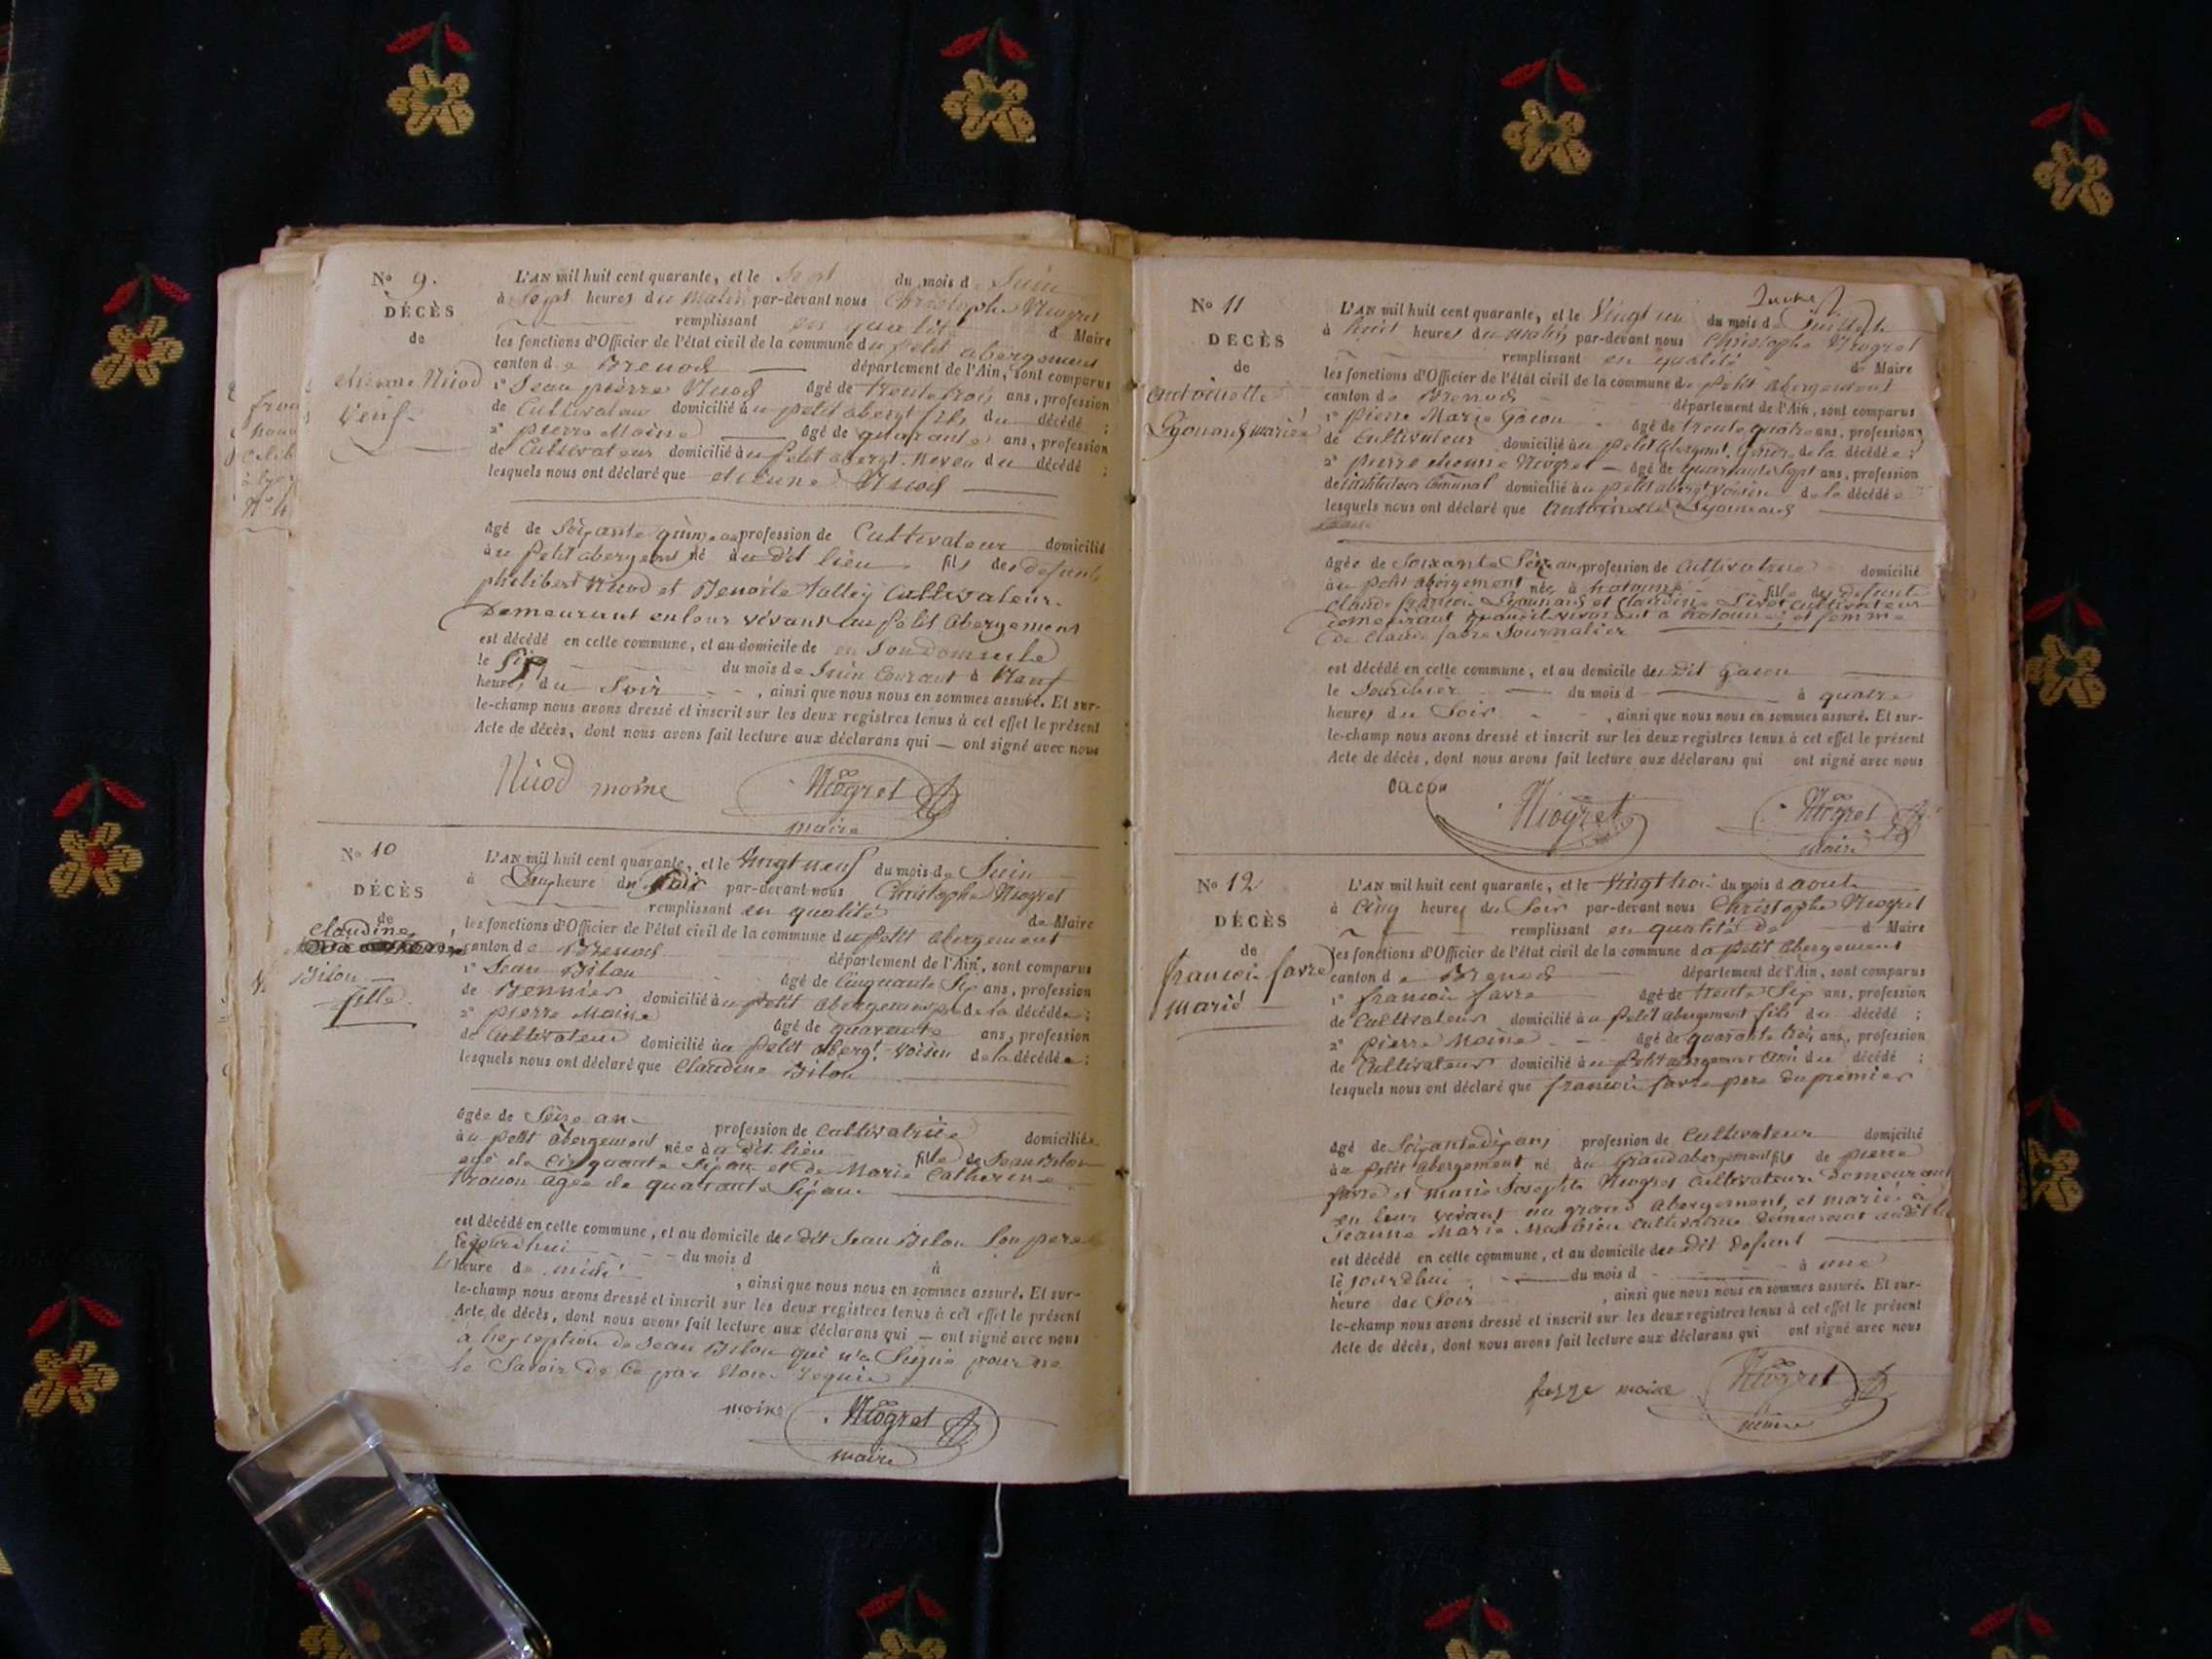 No 9.
DÉCÈS
de
etienne Niod
Veuf
L'AN mil huit cent quarante, et le Sept du mois de Juin
à Sept heures du Matin par-devant nous Christophe Niogret
remplissant en qualité d Maire
les fonctions d'Officier de l'état civil de la commune du petit abergement
canton de Brenod département de l'Ain, sont comparus
1° Jean pierre Niod âgé de trente trois ans, profession
de Cultivateur domicilié au petit abergt fils du décédé ;
2° pierre Moine âgé de quarante ans, profession
de Cultivateur domicilié au petit abergt. Neveu du décédé ;
lesquels nous ont déclaré que etienne Niod
âgé de Soixante quinze ans profession de Cultivateur domicilié
au petit abergemt né au dit lieu fils des defunts
philibert Niod et Benoite Vallij Cultivateurs
Demeurant en leur vivant au petit abergement
est décédé en cette commune, et au domicile de en Son domicile
le Six du mois de Juin Courant à Neuf
heures du Soir , ainsi que nous nous en sommes assuré. Et sur-
le-champ nous avons dressé et inscrit sur les deux registres tenus à cet effet le présent
Acte de décès, dont nous avons fait lecture aux déclarans qui — ont signé avec nous
Niod moine Niogret
maire
No 10
DÉCÈS
de
Claudine
Bilon
fille
L'AN mil huit cent quarante, et le Vingt neuf du mois de Juin
à heure du Soir par-devant nous Christophe Niogret
remplissant en qualité de Maire
les fonctions d'Officier de l'état civil de la commune du petit abergement
canton de Brenod département de l'Ain, sont comparus
1° Jean Bilon âgé de Cinquante Six ans, profession
de domicilié au petit abergement père de la décédée ;
2° pierre Moine âgé de quarante ans, profession
de Cultivateur domicilié au petit abergt. voisin de la décédée ;
lesquels nous ont déclaré que Claudine Bilon
âgée de Seize ans profession de Cultivatrice domiciliée
au petit abergement née au dit lieu fille de Jean Bilon
agé de Cinquante Six ans et de Marie Catherine
agée de quarante Six ans
est décédé en cette commune, et au domicile du dit Jean Bilon Son pere
le jourdhui du mois d à
heure de midi , ainsi que nous nous en sommes assuré. Et sur-
le-champ nous avons dressé et inscrit sur les deux registres tenus à cet effet le présent
Acte de décès, dont nous avons fait lecture aux déclarans qui — ont signé avec nous
a lexception de Jean Bilon qui n'a Signé pour ne
le Savoir de Ce par Nous requis
moine Niogret
maire
No 11
DECÈS
de
antoinette
Lyonnard mariée
L'AN mil huit cent quarante, et le Vingt un du mois de Juillet
à huit heures du matin par-devant nous Christophe Niogret
remplissant en qualité de Maire
les fonctions d'Officier de l'état civil de la commune du petit abergement
canton de Brenod département de l'Ain, sont comparus
1° pierre Marie Gacon âgé de trente quatre ans, profession
de Cultivateur domicilié au petit abergemt. gendre de la décédée ;
2° pierre etienne Niogret — âgé de quarante Sept ans, profession
de instituteur Communal domicilié au petit abergt voisin de la décédée
lesquels nous ont déclaré que antoinette Lyonnard
âgée de Soixante Seize ans profession de Cultivatrice domicilié
au petit abergement née à hotonne fille des defunts
Claude francois Lyonnard et Claudine Cultivateurs
demeurant quand ils vivoient a hotonne, et femme
de Claude favre Journalier
est décédé en cette commune, et au domicile du dit Gacon
le Jourdhier du mois d à quatre
heures du Soir , ainsi que nous nous en sommes assuré. Et sur-
le-champ nous avons dressé et inscrit sur les deux registres tenus à cet effet le présent
Acte de décès, dont nous avons fait lecture aux déclarans qui ont signé avec nous
Gacon Niogret Niogret
maire
No 12
DÉCÈS
de
francois favre
marié
L'AN mil huit cent quarante, et le Vingt trois du mois d aout
à Cinq heures du Soir par-devant nous Christophe Niogret
remplissant en qualité de d Maire
les fonctions d'Officier de l'état civil de la commune du petit abergement
canton de Brenod département de l'Ain, sont comparus
1° francois favre âgé de trente Six ans, profession
de Cultivateur domicilié au petit abergement fils du décédé ;
2° pierre Moine âgé de quarante trois ans, profession
de Cultivateur domicilié au petit abergement ami du décédé ;
lesquels nous ont déclaré que francois favre pere du premier
âgé de Soixante dix ans profession de Cultivateur domicilié
au petit abergement né au Grand abergement fils de pierre
favre et marie Josephte Niogret Cultivateurs demeurant
en leur vivant au grand abergement, et marié à
Jeanne Marie Mathieu Cultivatrice demeurant audit lieu
est décédé en cette commune, et au domicile du dit defunt
le jourdhui du mois d à une
heure du Soir , ainsi que nous nous en sommes assuré. Et sur-
le-champ nous avons dressé et inscrit sur les deux registres tenus à cet effet le présent
Acte de décès, dont nous avons fait lecture aux déclarans qui ont signé avec nous
favre moine Niogret
maire